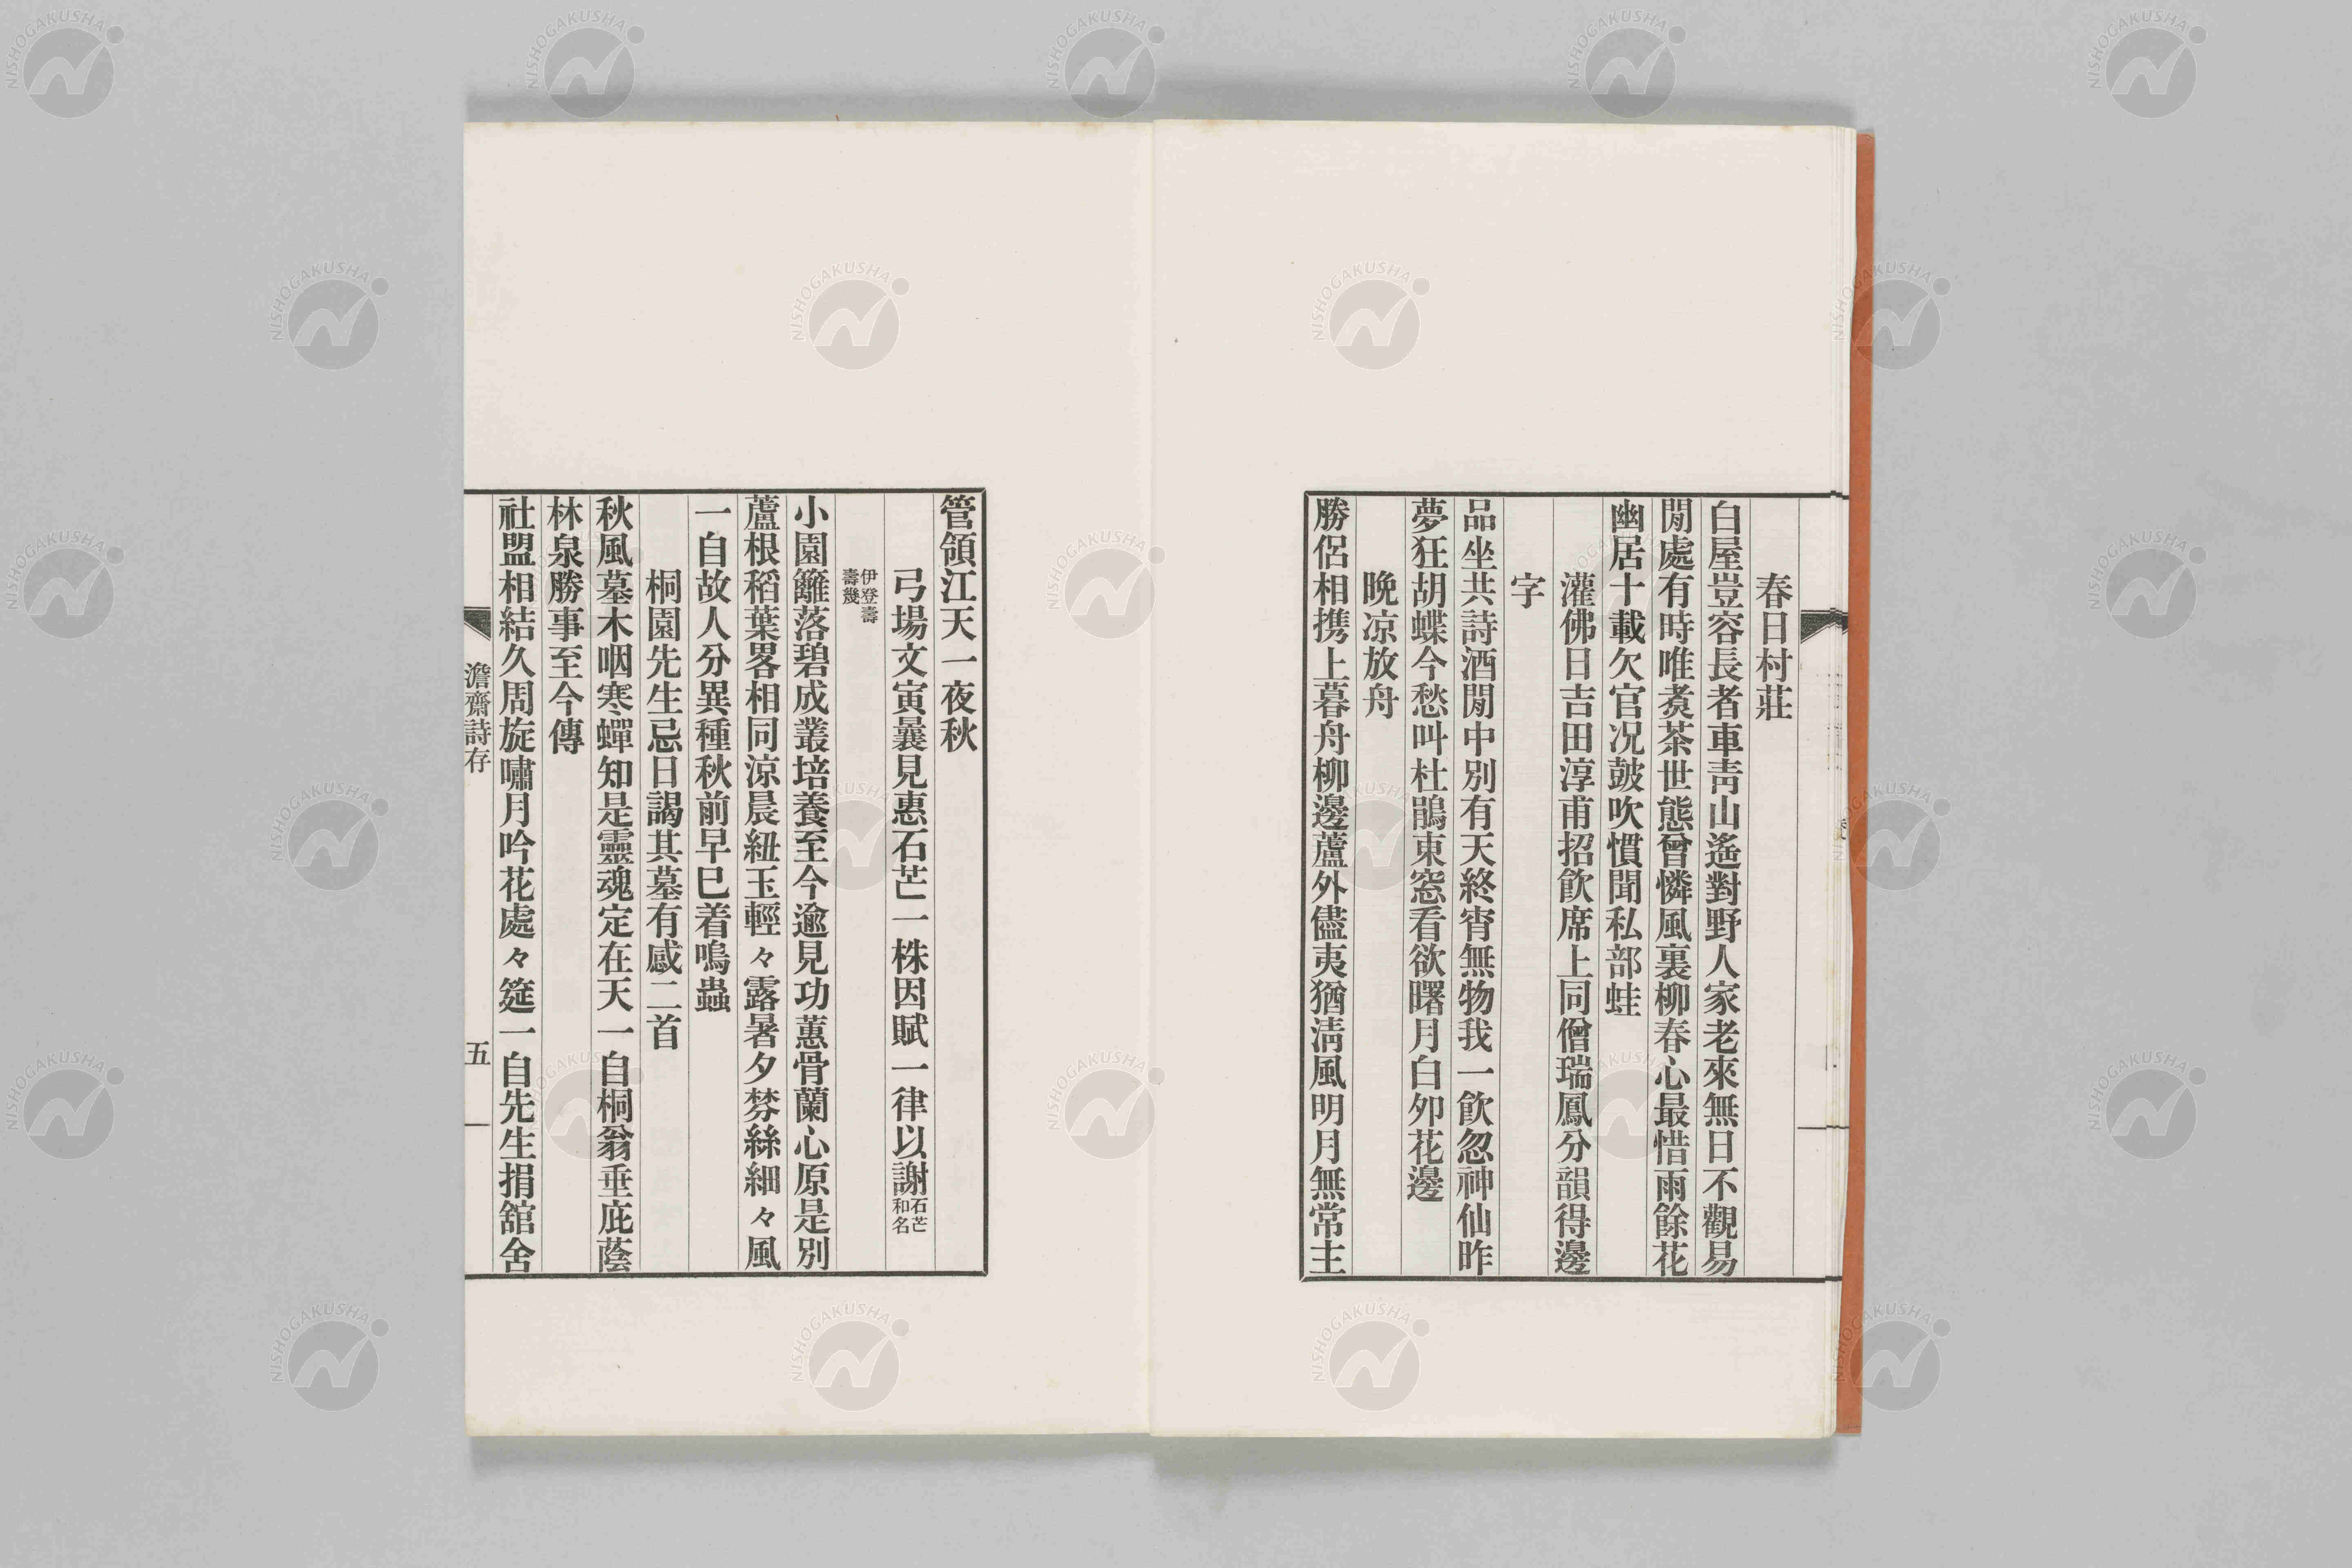 春日村莊
白屋豈容長者車靑山遙對野人家老來無日不觀易
閒處有時唯煑茶世態曾憐風裏柳春心最惜雨餘花
幽居十載欠官况皷吹慣聞私部蛙
灌佛日吉田淳甫招飮席上同僧瑞鳳分韻得邊
字
品坐共詩酒閒中別有天終宵無物我一飮忽神仙昨
夢狂胡蝶今愁叫杜鵑東窓看欲曙月白夘花邊
晩凉放舟
勝侶相携上暮舟柳邊蘆外儘夷猶淸風明月無常主
管領江天一夜秋
弓場文寅曩見惠石芒一株因賦一律以謝石芒和名
伊登壽壽幾
小園籬落碧成叢培養至今逾見功蕙骨蘭心原是別
蘆根稻葉畧相同涼晨紐玉輕々露暑夕棼絲細々風
一自故人分異種秋前早巳着鳴蟲
桐園先生忌日謁其墓有感二首
秋風墓木咽寒蟬知是靈魂定在天一自桐翁垂庇蔭
林泉勝事至今傳
社盟相結久周旋嘯月吟花處々筵一自先生捐舘舍
澹齋詩存
五
NISHOGAKUSHA